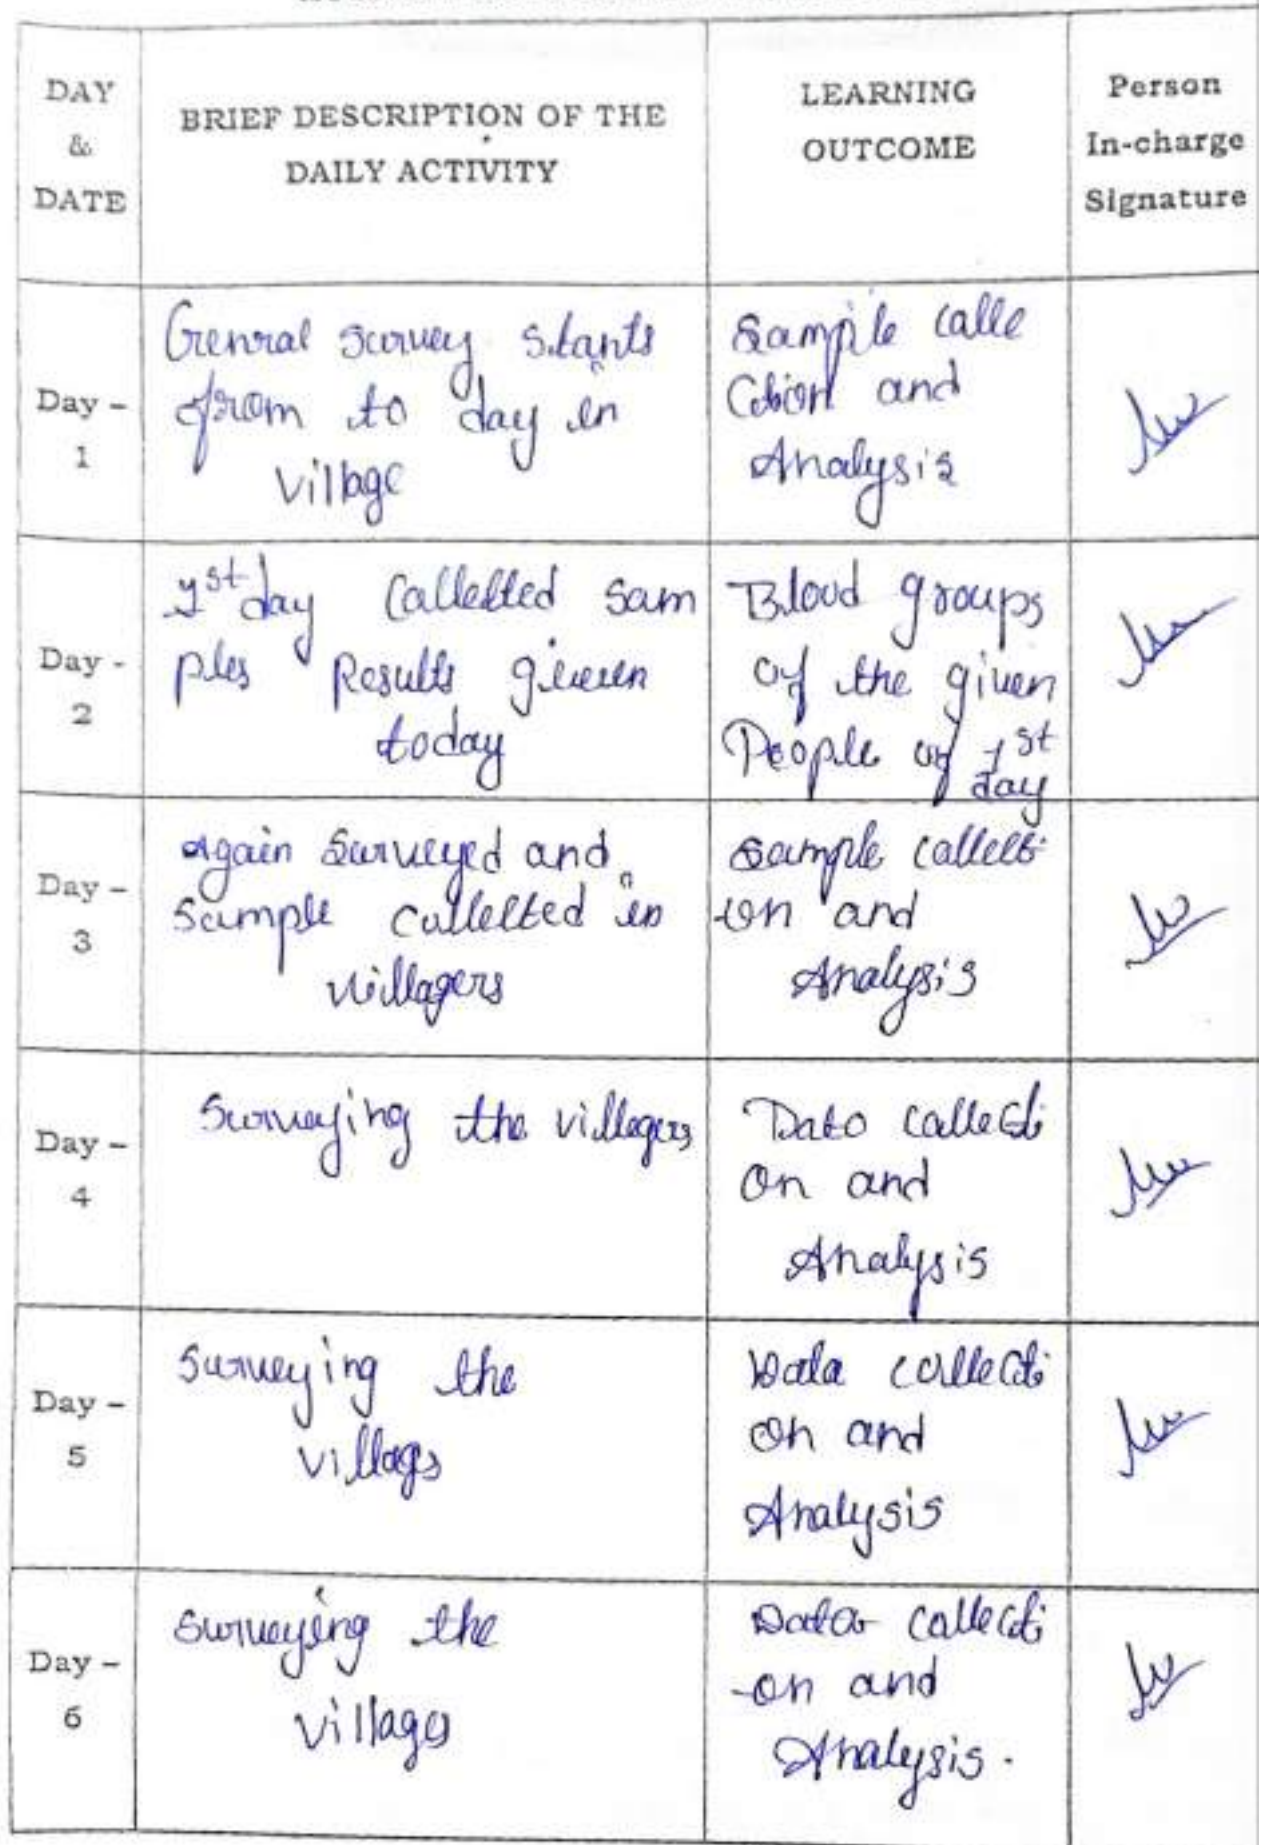 DAY
&
DATE
BRIEF DESCRIPTION OF THE
DAILY ACTIVITY
LEARNING
OUTCOME
Person
In-charge
Signature
Day -
1
Genral survey starts
from to day in
village
Sample calle
ction and
Analysis
Day -
2
1st day Callected Sam
ples Results given
today
Blood groups
of the given
People of 1st
day
Day -
3
Again Surveyed and
Sample collected in
villagers
Sample collecti
on and
Analysis
Day -
4
Surveying the villegers
Data collecti
on and
Analysis
Day -
5
Surveying the
villags
Data collecti
on and
Analysis
Day -
6
Surveying the
villags
Data collecti
-on and
Analysis.